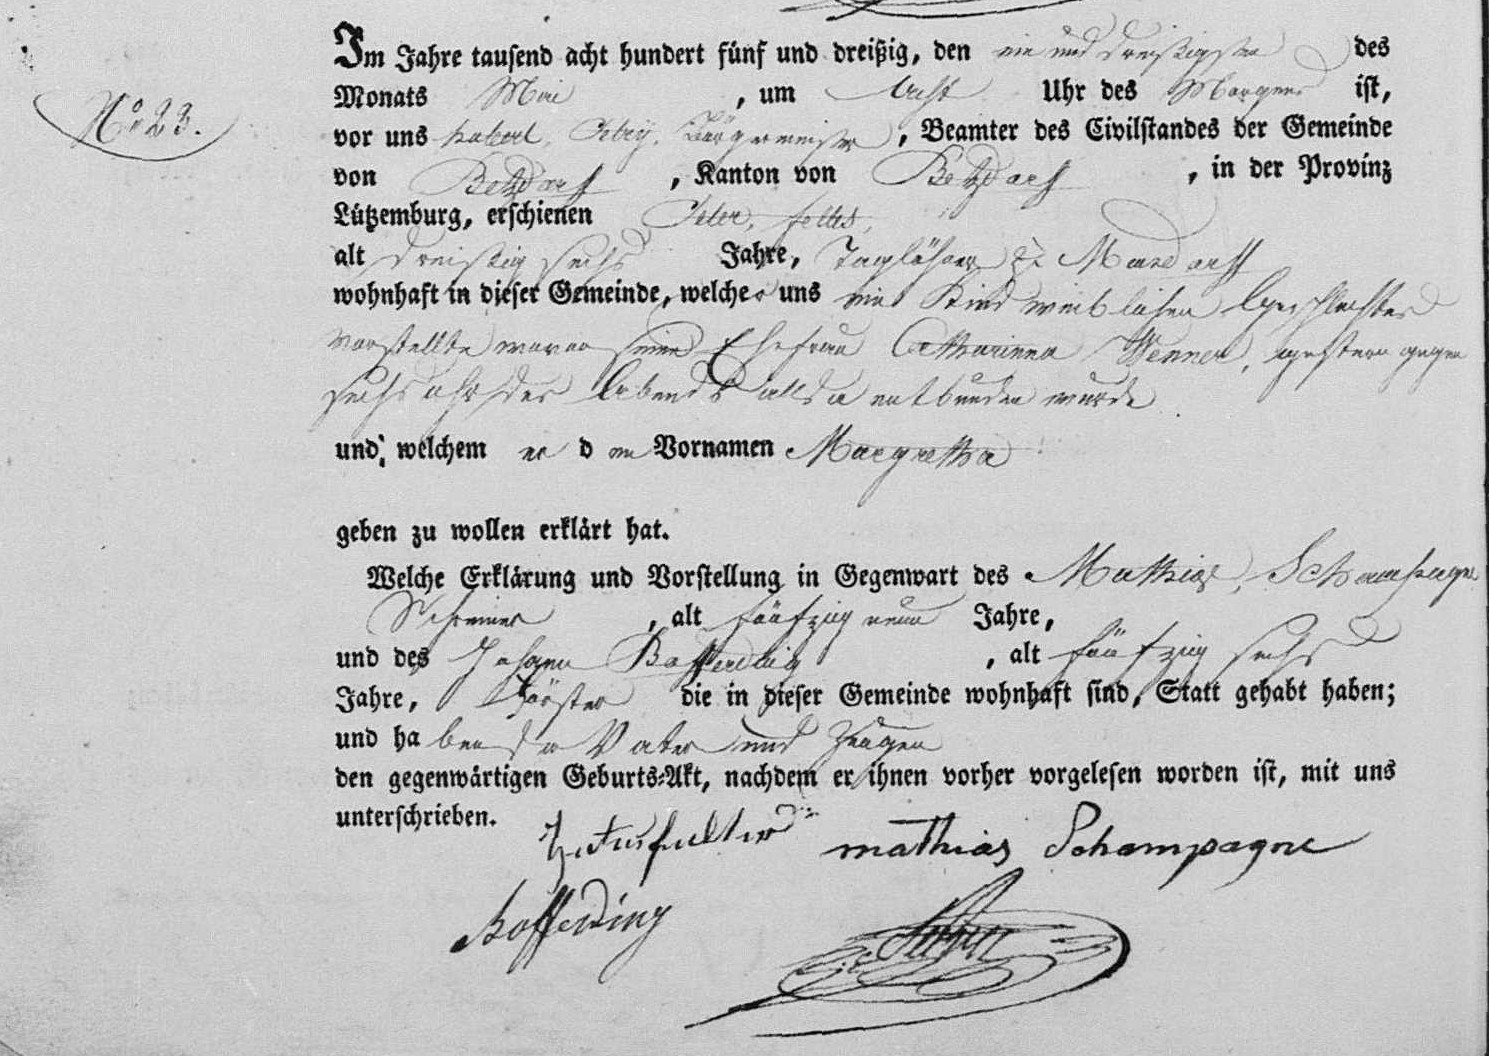 Im Jahre tausend acht hundert fünf und dreißig, den ein und dreißigsten des
No 23.
Monats Mai , um Acht Uhr des Morgens ist,
vor uns Bürgermeister , Beamter des Civilstandes der Gemeinde
von Betzdorf , Kanton von Betzdorf , in der Provinz
Lützemburg, erschienen Peter, Feltes,
alt dreißig sechs Jahre, Taglöhner zu
wohnhaft in dieser Gemeinde, welcher uns ein Kind weiblichen Geschlechtes
vorstellte wovon seine Ehefrau Catharinna Wenner, gestern gegen
sechs uhr des Abends allda entbunden wurde
und, welchem er den Vornamen Margretha
geben zu wollen erklärt hat.
Welche Erklärung und Vorstellung in Gegenwart des Mathias, Schampagne
Schreiner , alt fünfzig neun Jahre,
und des Johann Bofferding , alt fünfzig sechs
Jahre, Förster die in dieser Gemeinde wohnhaft sind, Statt gehabt haben;
und haben der Vater und Zeugen
den gegenwärtigen Geburts-Akt, nachdem er ihnen vorher vorgelesen worden ist, mit uns
unterschrieben.
mathias Schampagne
Bofferding